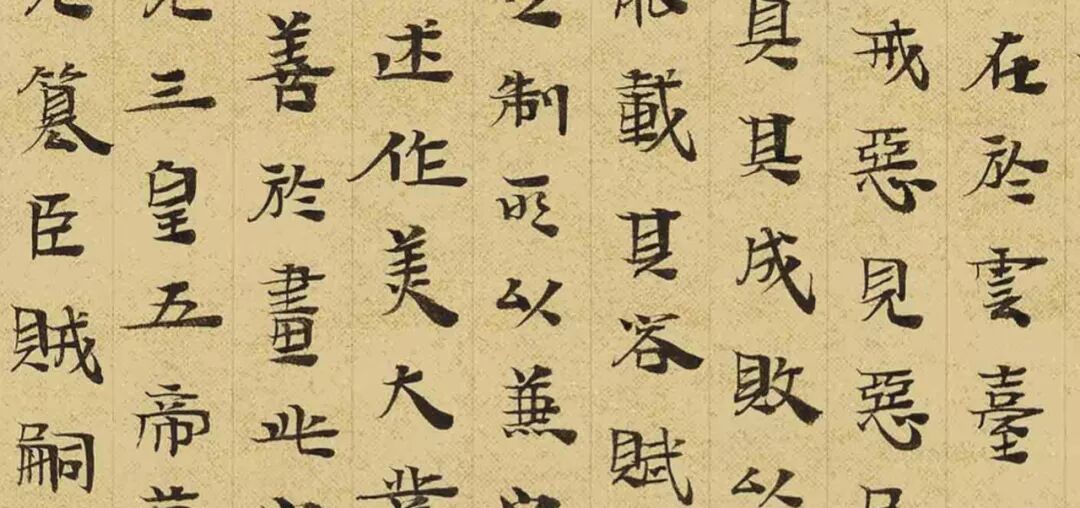 在於雲臺
戒惡見惡
具其成敗以
載其容賦
制所以兼
述作美大業
善於畫此
三皇五帝
篡臣賊嗣